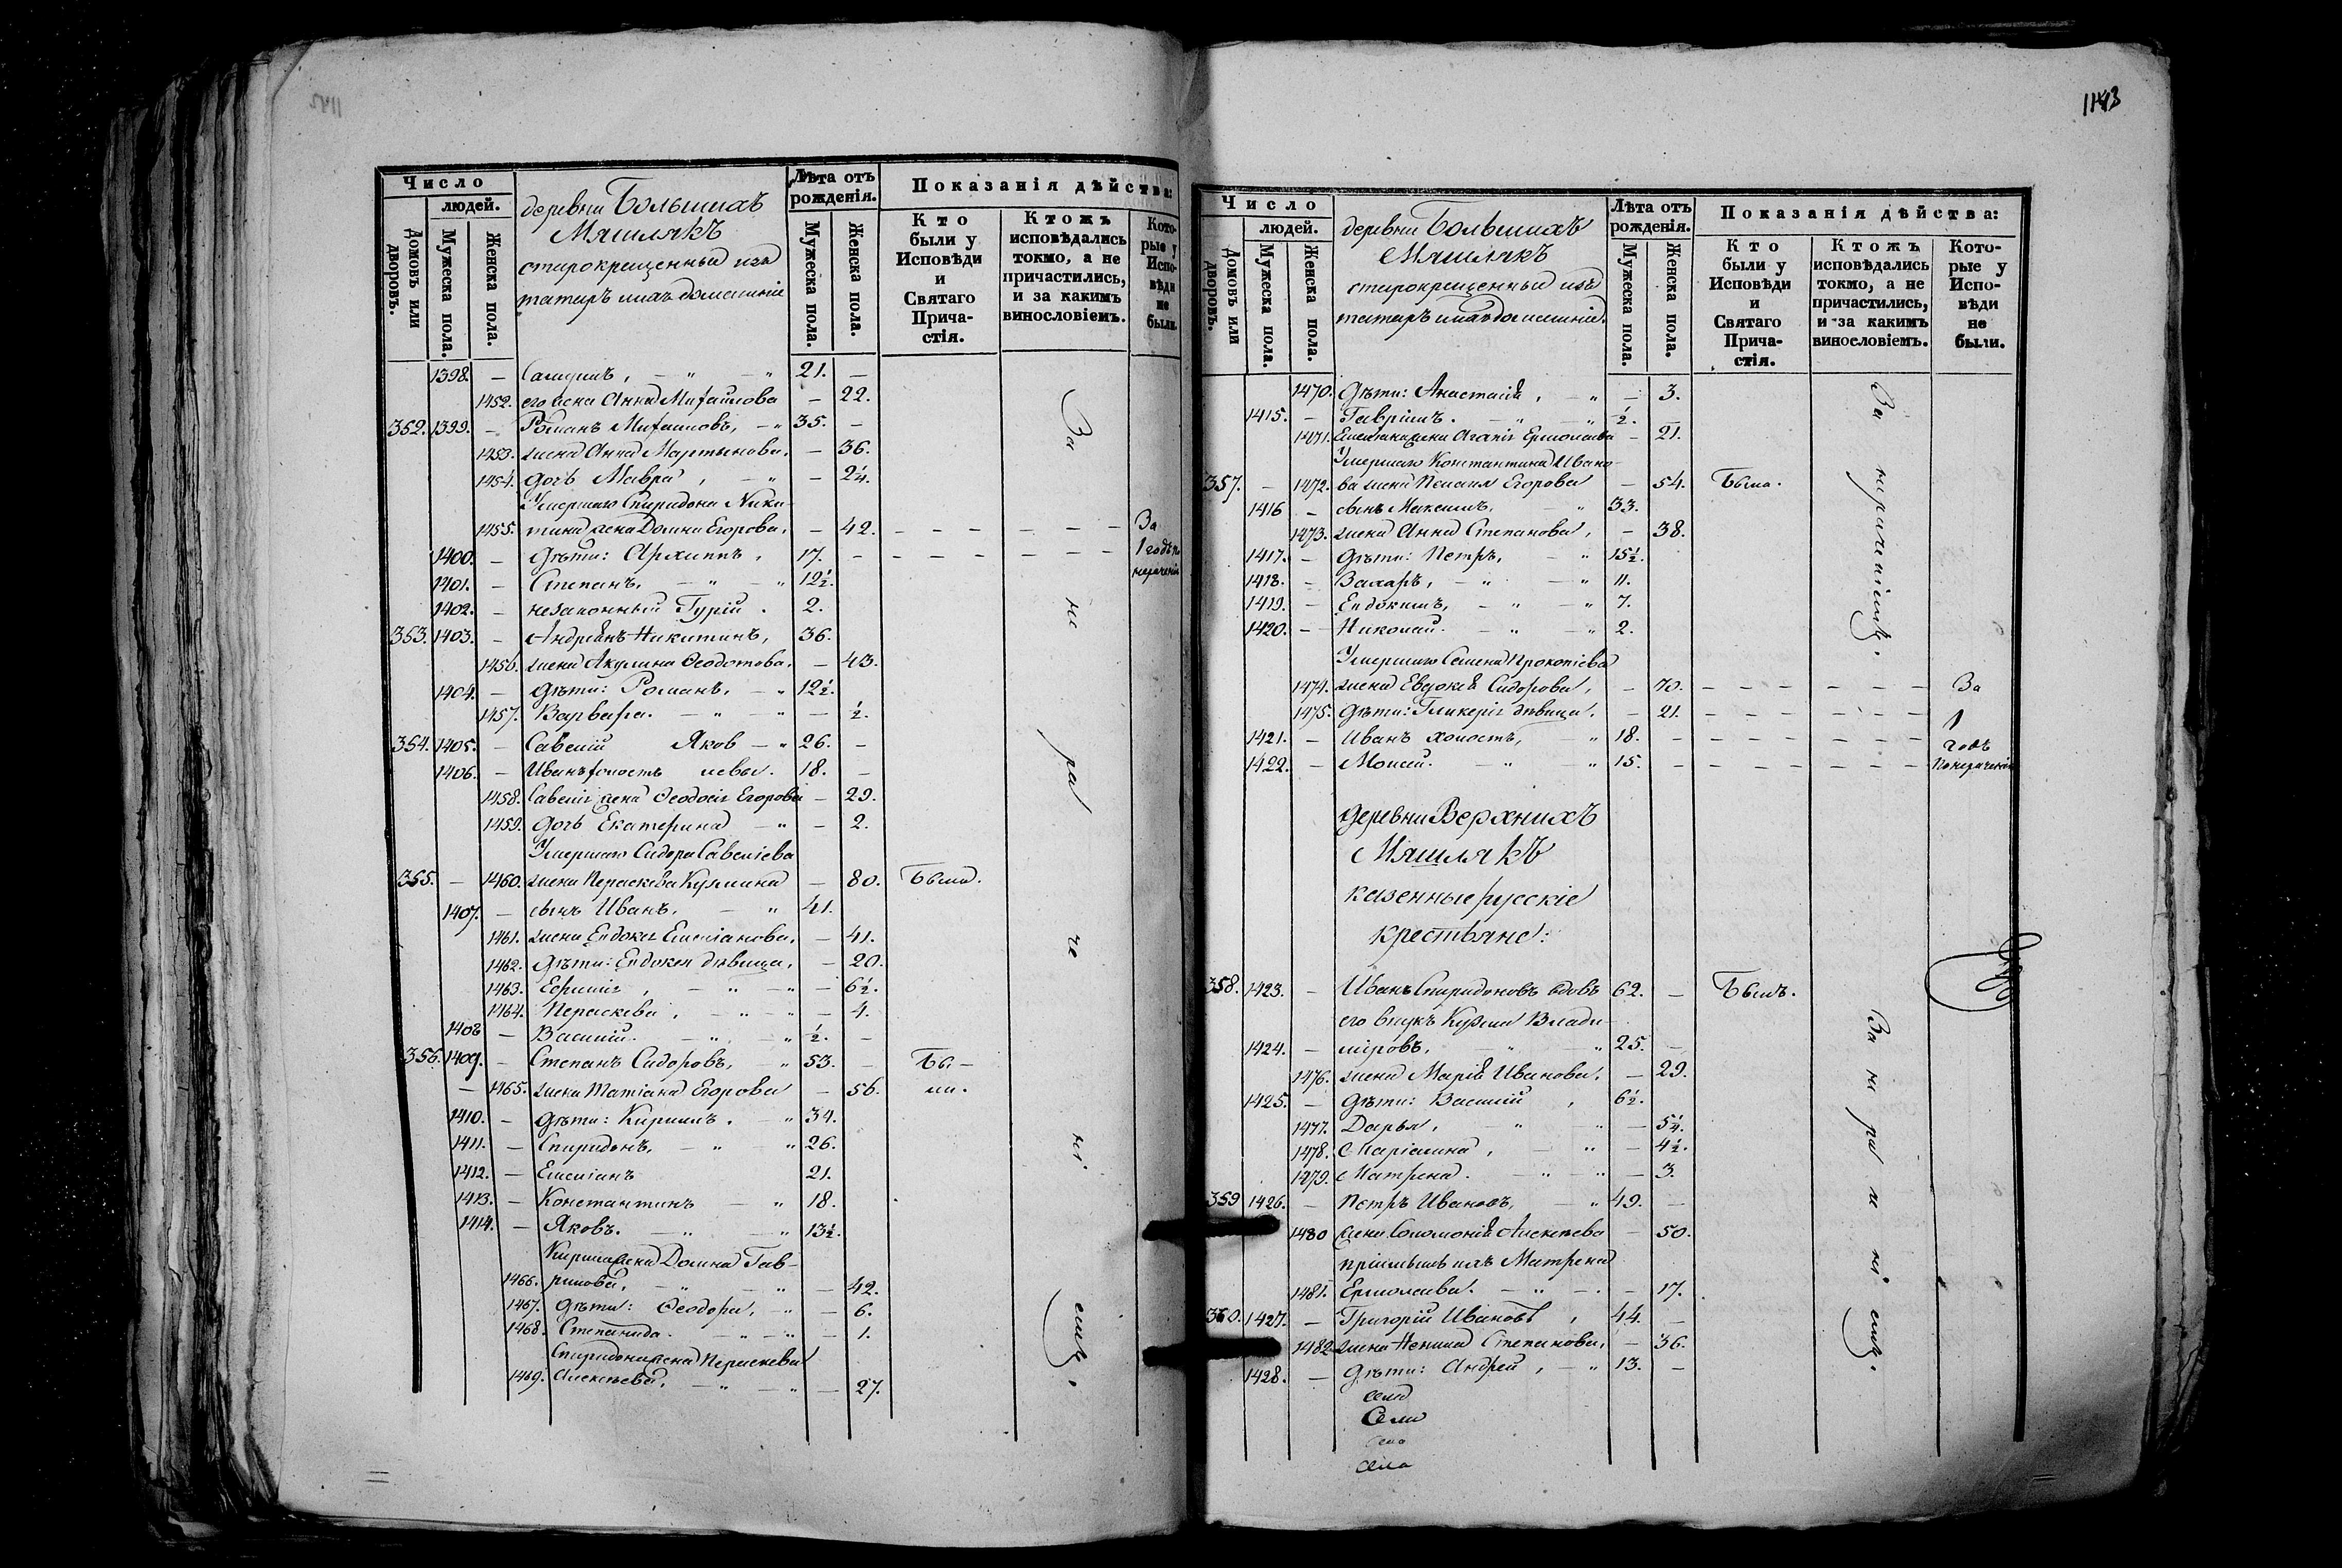 Число
людей.
Домовъ или дворовъ.
Мужеска пола.
Женска пола.
деревни Большихъ
Мяшлякъ
старокрещенныя изъ
татаръ
Лѣта отъ
рожденія.
Мужеска пола.
Женска пола.
Показанія дѣйства:
Кто были у Исповѣди и Святаго Прича-стія.
Ктожъ исповѣдались токмо, а не причастились, и за какимъ винословіемъ.
Кото-рые у Испо-вѣди не были.
1398. — Самуилъ, — " — " 21. —
1452. его жена Анна Михайлова — 22.
352. 1399. — Романъ Михайловъ, — " 35. —
1453. жена Анна Мартынова. — 36.
1454. дочь Мавра, — " — 2¼.
Умершаго Спиридона Ники-
1455. тина жена Домна Егорова. — 42. — — — — — — За
1400. — дѣти: Архиппъ, 17. — — — — — — — 1 годъ по
1401. — Степанъ. — " — " 12½. нераченію
1402. — незаконный Гурій. 2.
353. 1403. — Андреянъ Никитинъ, 36.
1456. жена Акулина Ѳеодотова. — 43.
1404. — дѣти: Романъ. — " 12½.
1457. Варвара. — " — " — ½.
354. 1405. — Савелій Яков — " 26. —
1406. — Иванъ холостъ левы. 18. —
1458. Савелія жена Ѳеодосія Егорова — 29.
1459. дочь Екатерина — " — 2.
Умершаго Сидора Савеліева
355. — 1460. жена Параскева Кузмина — 80. Была.
1407. — сынъ Иванъ. — " 41.
1461. жена Евдокія Емеліанова. — 41.
1462. дѣти: Евдокея дѣвица. — 20.
1463. Ефимія, — " — " — 6½.
1464. Параскева. — " — " — 4.
1408 — Василій. — " — " ½. —
356. 1409. — Степанъ Сидоровъ, " 53. — Бы-
— 1465. жена Татіана Егорова — 56. ли.
1410. — дѣти: Кириллъ. — " 34.
1411. — Спиридонъ, — " — " 26.
1412. — Емеліанъ 21.
1413. — Константинъ — " 18.
1414. — Яковъ. — " — " 13½.
Кирила жена Домна Гав-
1466. рилова, — " — " — 42.
1467. дѣти: Ѳеодора, — " — 6.
1468. Степанида. — " — " — 1.
Спиридона жена Параскева
1469. Алексѣева, — " — " — 27.
За не ра че ні емъ.
1143
Число
людей.
Домовъ или дворовъ.
Мужеска пола.
Женска пола.
деревни Большихъ
Мяшлякъ
старокрещенныя изъ
татаръ
Лѣта отъ
рожденія.
Мужеска пола.
Женска пола.
Показанія дѣйства:
Кто были у Исповѣди и Святаго Прича-стія.
Ктожъ исповѣдались токмо, а не причастились, и за какимъ винословіемъ.
Кото-рые у Испо-вѣди не были.
1470. дѣти: Анастасія, — " — 3.
1415. — Гавріилъ. — " — " ½. —
1471. Емеліана жена Агапія Ермолаева — 21.
Умершаго Константина Ивано-
357. — 1472. ва жена Пелагія Егорова — 54. Была.
1416 — сынъ Максимъ. — " 33.
1473. жена Анна Степанова, — 38.
1417. — дѣти: Петръ, — " 15½.
1418. — Захаръ, — " — " 11.
1419. — Евдокимъ, — " — " 7.
1420. — Николай. — " — " 2.
Умершаго Семена Прокопіева
1474. жена Евдокія Сидорова, — 70. — — — — — — За
1475. дѣти: Гликерія дѣвица. — 21. — — — — — — 1
1421. — Иванъ холостъ, — " 18. — — — — — — — годъ
1422. — Моисей. — " — " 15. — — — — — — — по нераченію
За нераченіемъ.
деревни Верхнихъ
Мяшлякъ
казенные русскіе
крестьяне:
358. 1423. — Иванъ Спиридоновъ вдовъ 62. — Былъ.
его внукъ Кузма Влади-
1424. — міровъ, — " — " 25. —
1476. жена Марія Иванова. — 29.
1425. — дѣти: Василій, 6½.
1477. Дарья, — " — " — 5¼.
1478. Маріамна, — " — 4½.
1479. Матрена. — " — " — 3.
359 1426. — Петръ Ивановъ, — " 49. —
1480 жена Соломонія Алексѣева — 50.
пріемышъ ихъ Матрена
1481. Ермолаева. — " — " — 17.
360. 1427. — Григорій Ивановъ, 44. —
1482 жена Ненила Степанова, — 36.
1428. — дѣти: Андрей, — " 13. —
За не ра че ні емъ.
Села
Села
Села
Села